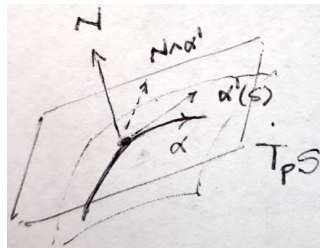 N
N∧α'
α'(s)
α
TpS